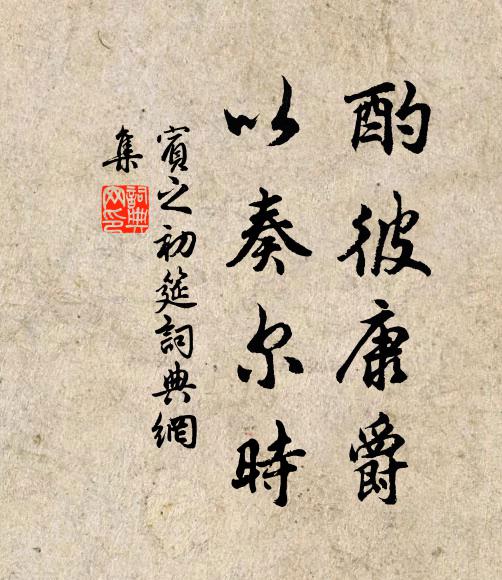 酌彼康爵
以奏尔時
賓之初筵詞典網
集
詞典
网印